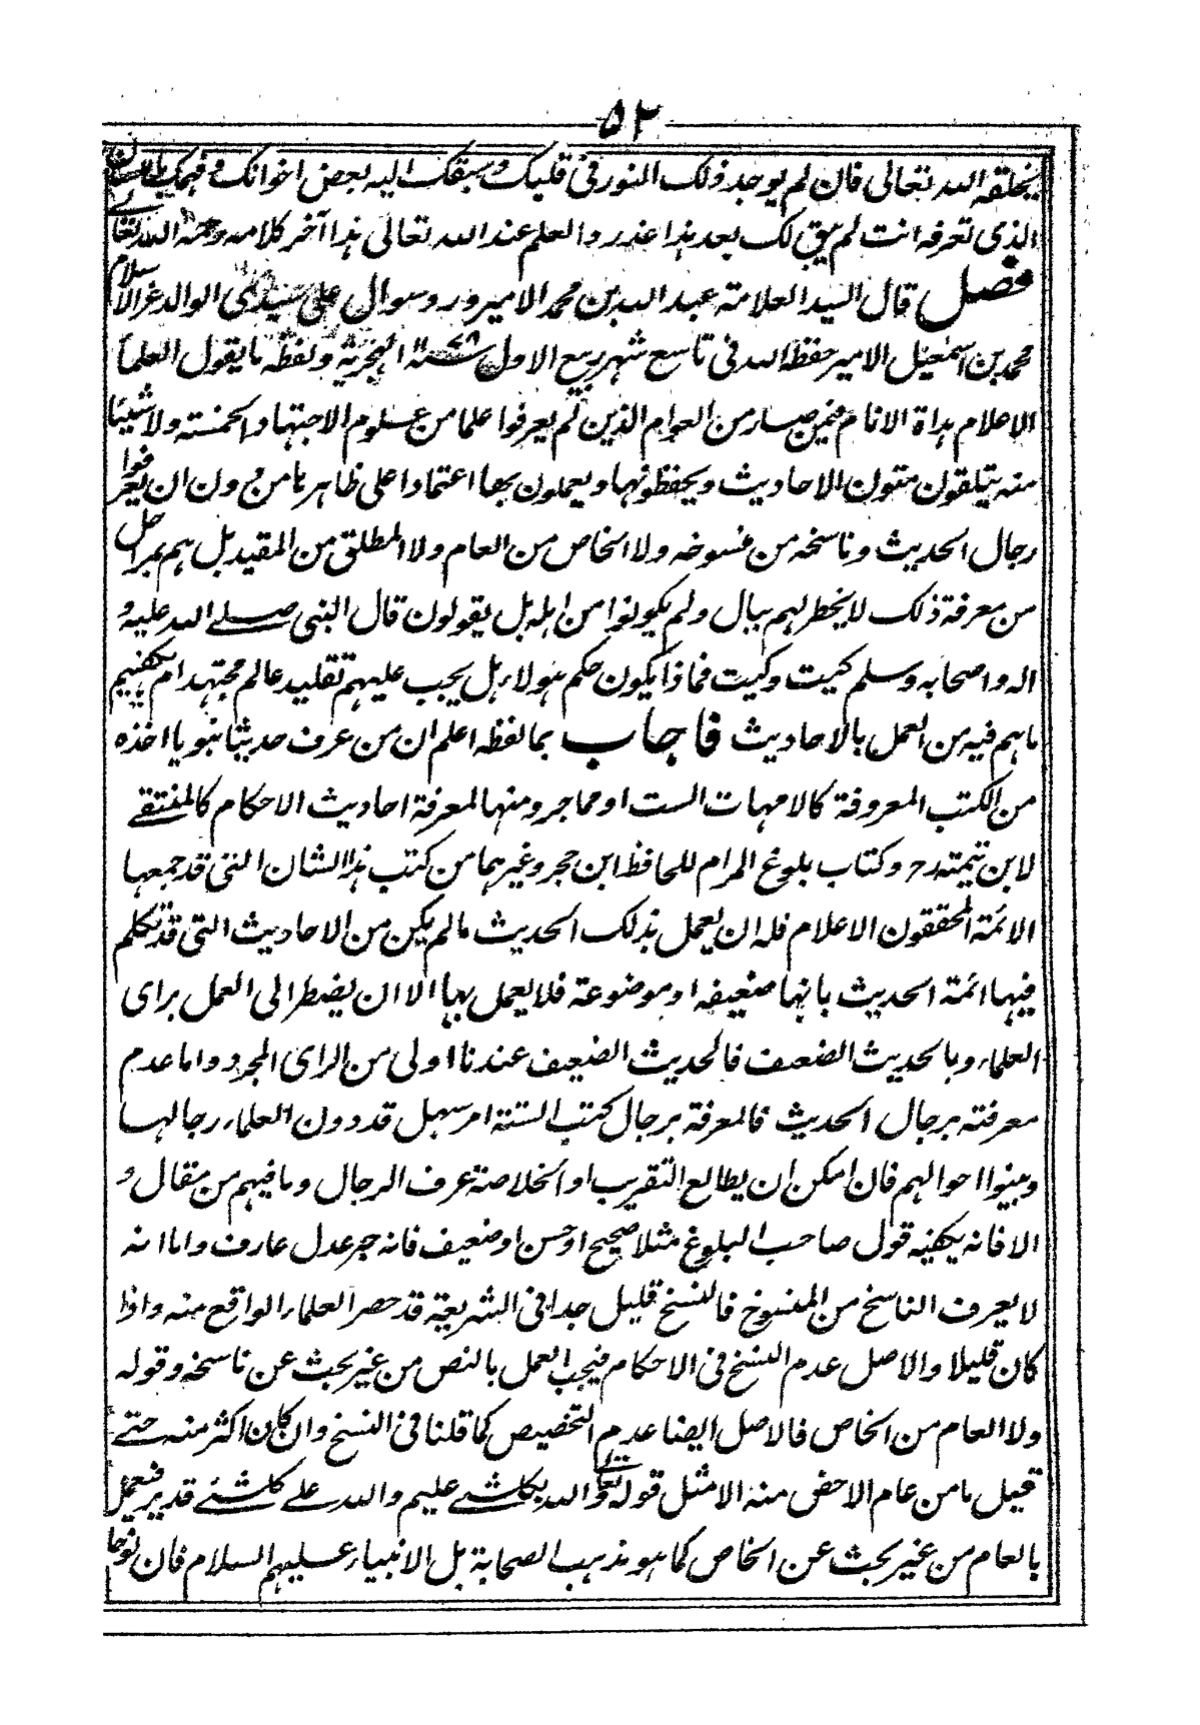 ٥٢
يخلقه الله تعالى فان لم يوجد ذلك النور فى قلبك وسبقك اليه بعض اخوانك وفهمك
الذى تعرفه انت لم يبق لك بعد هذا عذر والعلم عند الله تعالى هذا آخر كلامه رحمه الله تعالے
فصل قال السيد العلامة عبد الله بن محمد الامير ورد سوال على سيدى الوالد عز الاسلام
محمد بن اسمعيل الامير حفظه الله فى تاسع شهر ربيع الاول سنة الهجرية ولفظه ما يقول العلماء
الاعلام هداة الانام فيمن صار من العوام الذين لم يعرفوا علما من علوم الاجتهاد الخمسة ولا شيئا
منه يتلقون متون الاحاديث ويحفظونها ويعملون بها اعتمادا على ظاهر ما من دون ان يعرفوا
رجال الحديث وناسخه من منسوخه ولا الخاص من العام ولا المطلق من المقيد بل هم بمراحل
من معرفة ذلك لا يخطر لهم ببال ولم يكونوا من اهله بل يقولون قال النبى صلے الله عليه و
اله واصحابه وسلم كيت وكيت فماذا يكون حكم هولاء هل يجب عليهم تقليد عالم مجتهد ام يكفيهم
ما هم فيه من العمل بالاحاديث فاجاب بما لفظه اعلم ان من عرف حديثا نبويا اخذه
من الكتب المعروفة كالامهات الست او مما جرد منها لمعرفة احاديث الاحكام كالمنتقے
لابن تيمية رح وكتاب بلوغ المرام للحافظ ابن حجر وغيرهما من كتب هذا الشان التى قد جمعها
الائمة المحققون الاعلام فله ان يعمل بذلك الحديث ما لم يكن من الاحاديث التى قد تكلم
فيها ائمة الحديث بانها ضعيفه او موضوعة فلا يعمل بها الا ان يضطر الى العمل براى
العلماء وبالحديث الضعف فالحديث الضعيف عندنا اولى من الراى المجرد واما عدم
معرفته برجال الحديث فالمعرفة برجال كتب الستة امر سهل قد دون العلماء رجالها
وبينوا احوالهم فان امكن ان يطالع التقريب او الخلاصة عرف الرجال وما فيهم من مقال و
الا فانه يكفيه قول صاحب البلوغ مثلا صحيح او حسن او ضعيف فانه حبر عدل عارف واما انه
لا يعرف الناسخ من المنسوخ فالنسخ قليل جدا فى الشريعة قد حصر العلماء الواقع منه واذا
كان قليلا والاصل عدم النسخ فى الاحكام فيجب العمل بالنص من غير بحث عن ناسخه وقوله
ولا العام من الخاص فالاصل ايضا عدم التخصيص كما قلنا فى النسخ وان كان اكثر منه حتے
قيل ما من عام الا خص منه الا مثل قوله تعالے والله بكل شے عليم والله علے كل شے قدير فيعمل
بالعام من غير بحث عن الخاص كما هو مذهب الصحابة بل الانبياء عليهم السلام فان نوحا